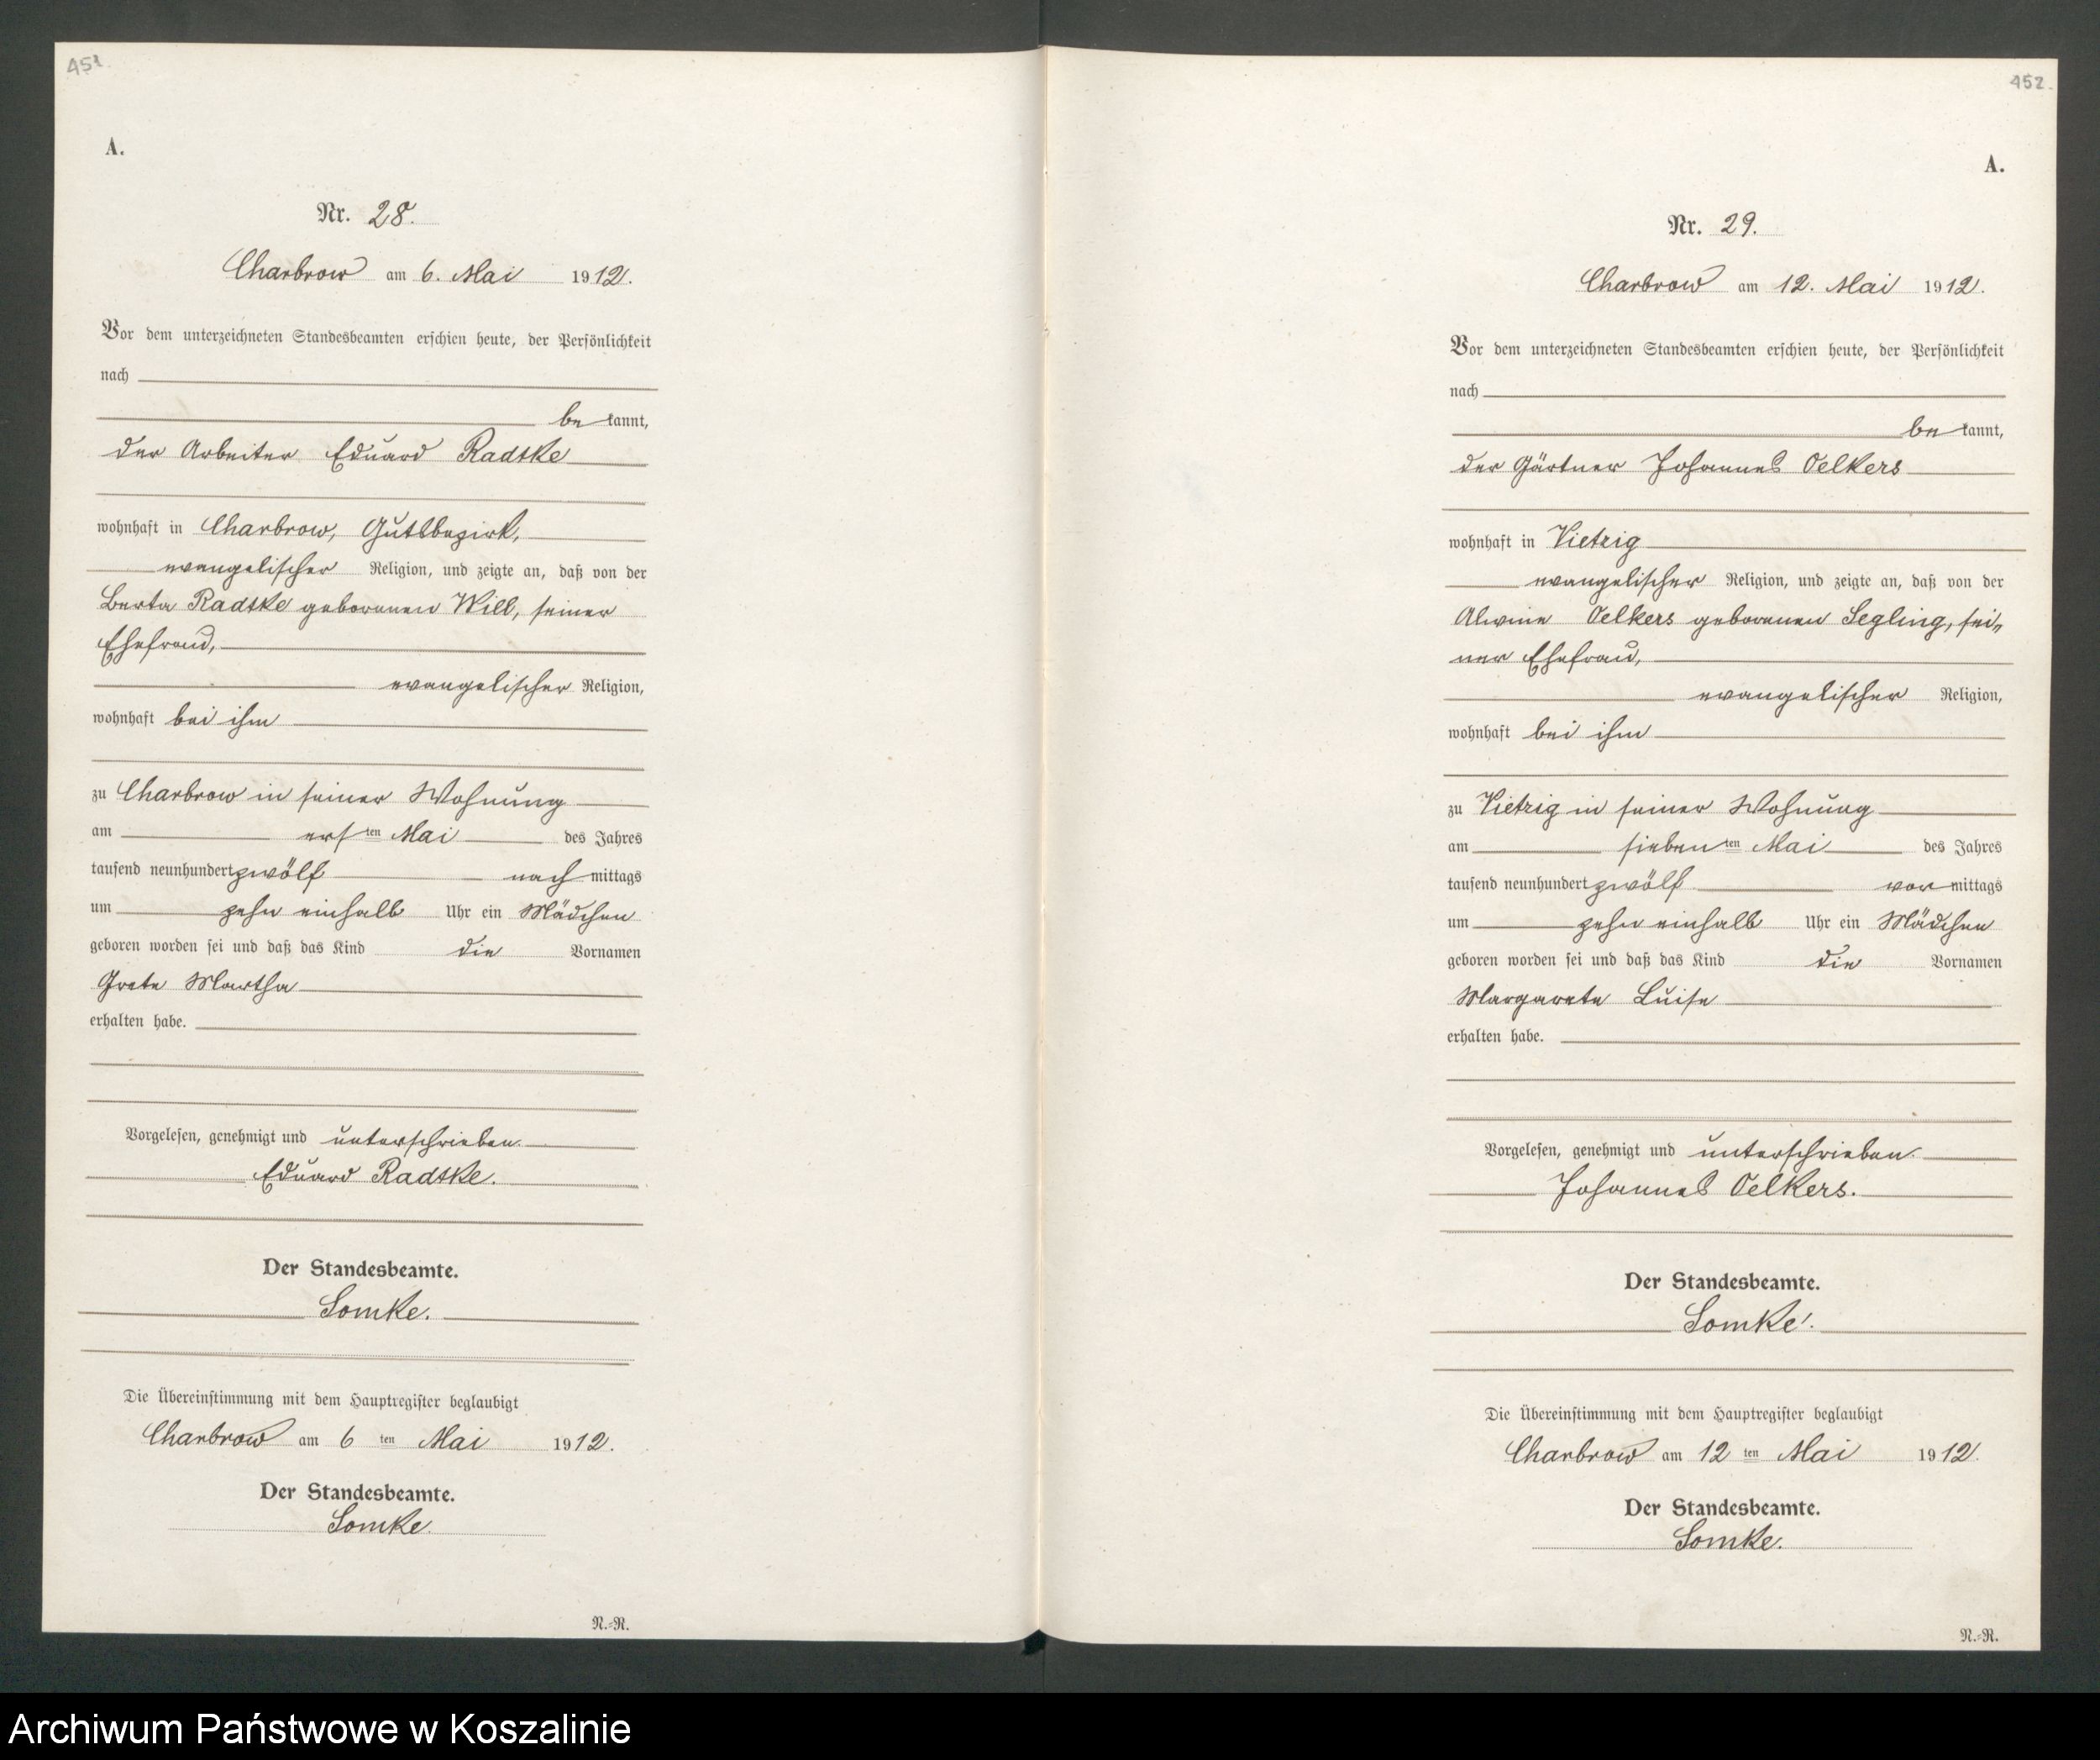 451.
A.
Nr. 28.
Charbrow am 6. Mai 1912.
Vor dem unterzeichneten Standesbeamten erschien heute, der Persönlichkeit
nach
be kannt,
der Arbeiter Eduard Radtke
wohnhaft in Charbrow, Gutsbezirk,
evangelischer Religion, und zeigte an, daß von der
Berta Radtke geborenen Will, seiner
Ehefrau,
evangelischer Religion,
wohnhaft bei ihm
zu Charbrow in seiner Wohnung
am ers ten Mai des Jahres
tausend neunhundert zwölf nach mittags
um zehn einhalb Uhr ein Mädchen
geboren worden sei und daß das Kind die Vornamen
Grete Martha
erhalten habe.
Vorgelesen, genehmigt und unterschrieben.
Eduard Radtke.
Der Standesbeamte.
Somke.
Die Übereinstimmung mit dem Hauptregister beglaubigt
Charbrow am 6 ten Mai 1912.
Der Standesbeamte.
Somke.
N.-R.
452.
A.
Nr. 29.
Charbrow am 12. Mai 1912.
Vor dem unterzeichneten Standesbeamten erschien heute, der Persönlichkeit
nach
be kannt,
der Gärtner Johannes Oelkers
wohnhaft in Vietzig
evangelischer Religion, und zeigte an, daß von der
Alwine Oelkers geborenen Segling, sei„
ner Ehefrau,
evangelischer Religion,
wohnhaft bei ihm
zu Vietzig in seiner Wohnung
am sieben ten Mai des Jahres
tausend neunhundert zwölf vor mittags
um zehn einhalb Uhr ein Mädchen
geboren worden sei und daß das Kind die Vornamen
Margarete Luise
erhalten habe.
Vorgelesen, genehmigt und unterschrieben.
Johannes Oelkers.
Der Standesbeamte.
Somke.
Die Übereinstimmung mit dem Hauptregister beglaubigt
Charbrow am 12 ten Mai 1912.
Der Standesbeamte.
Somke.
N.-R.
Archiwum Państwowe w Koszalinie